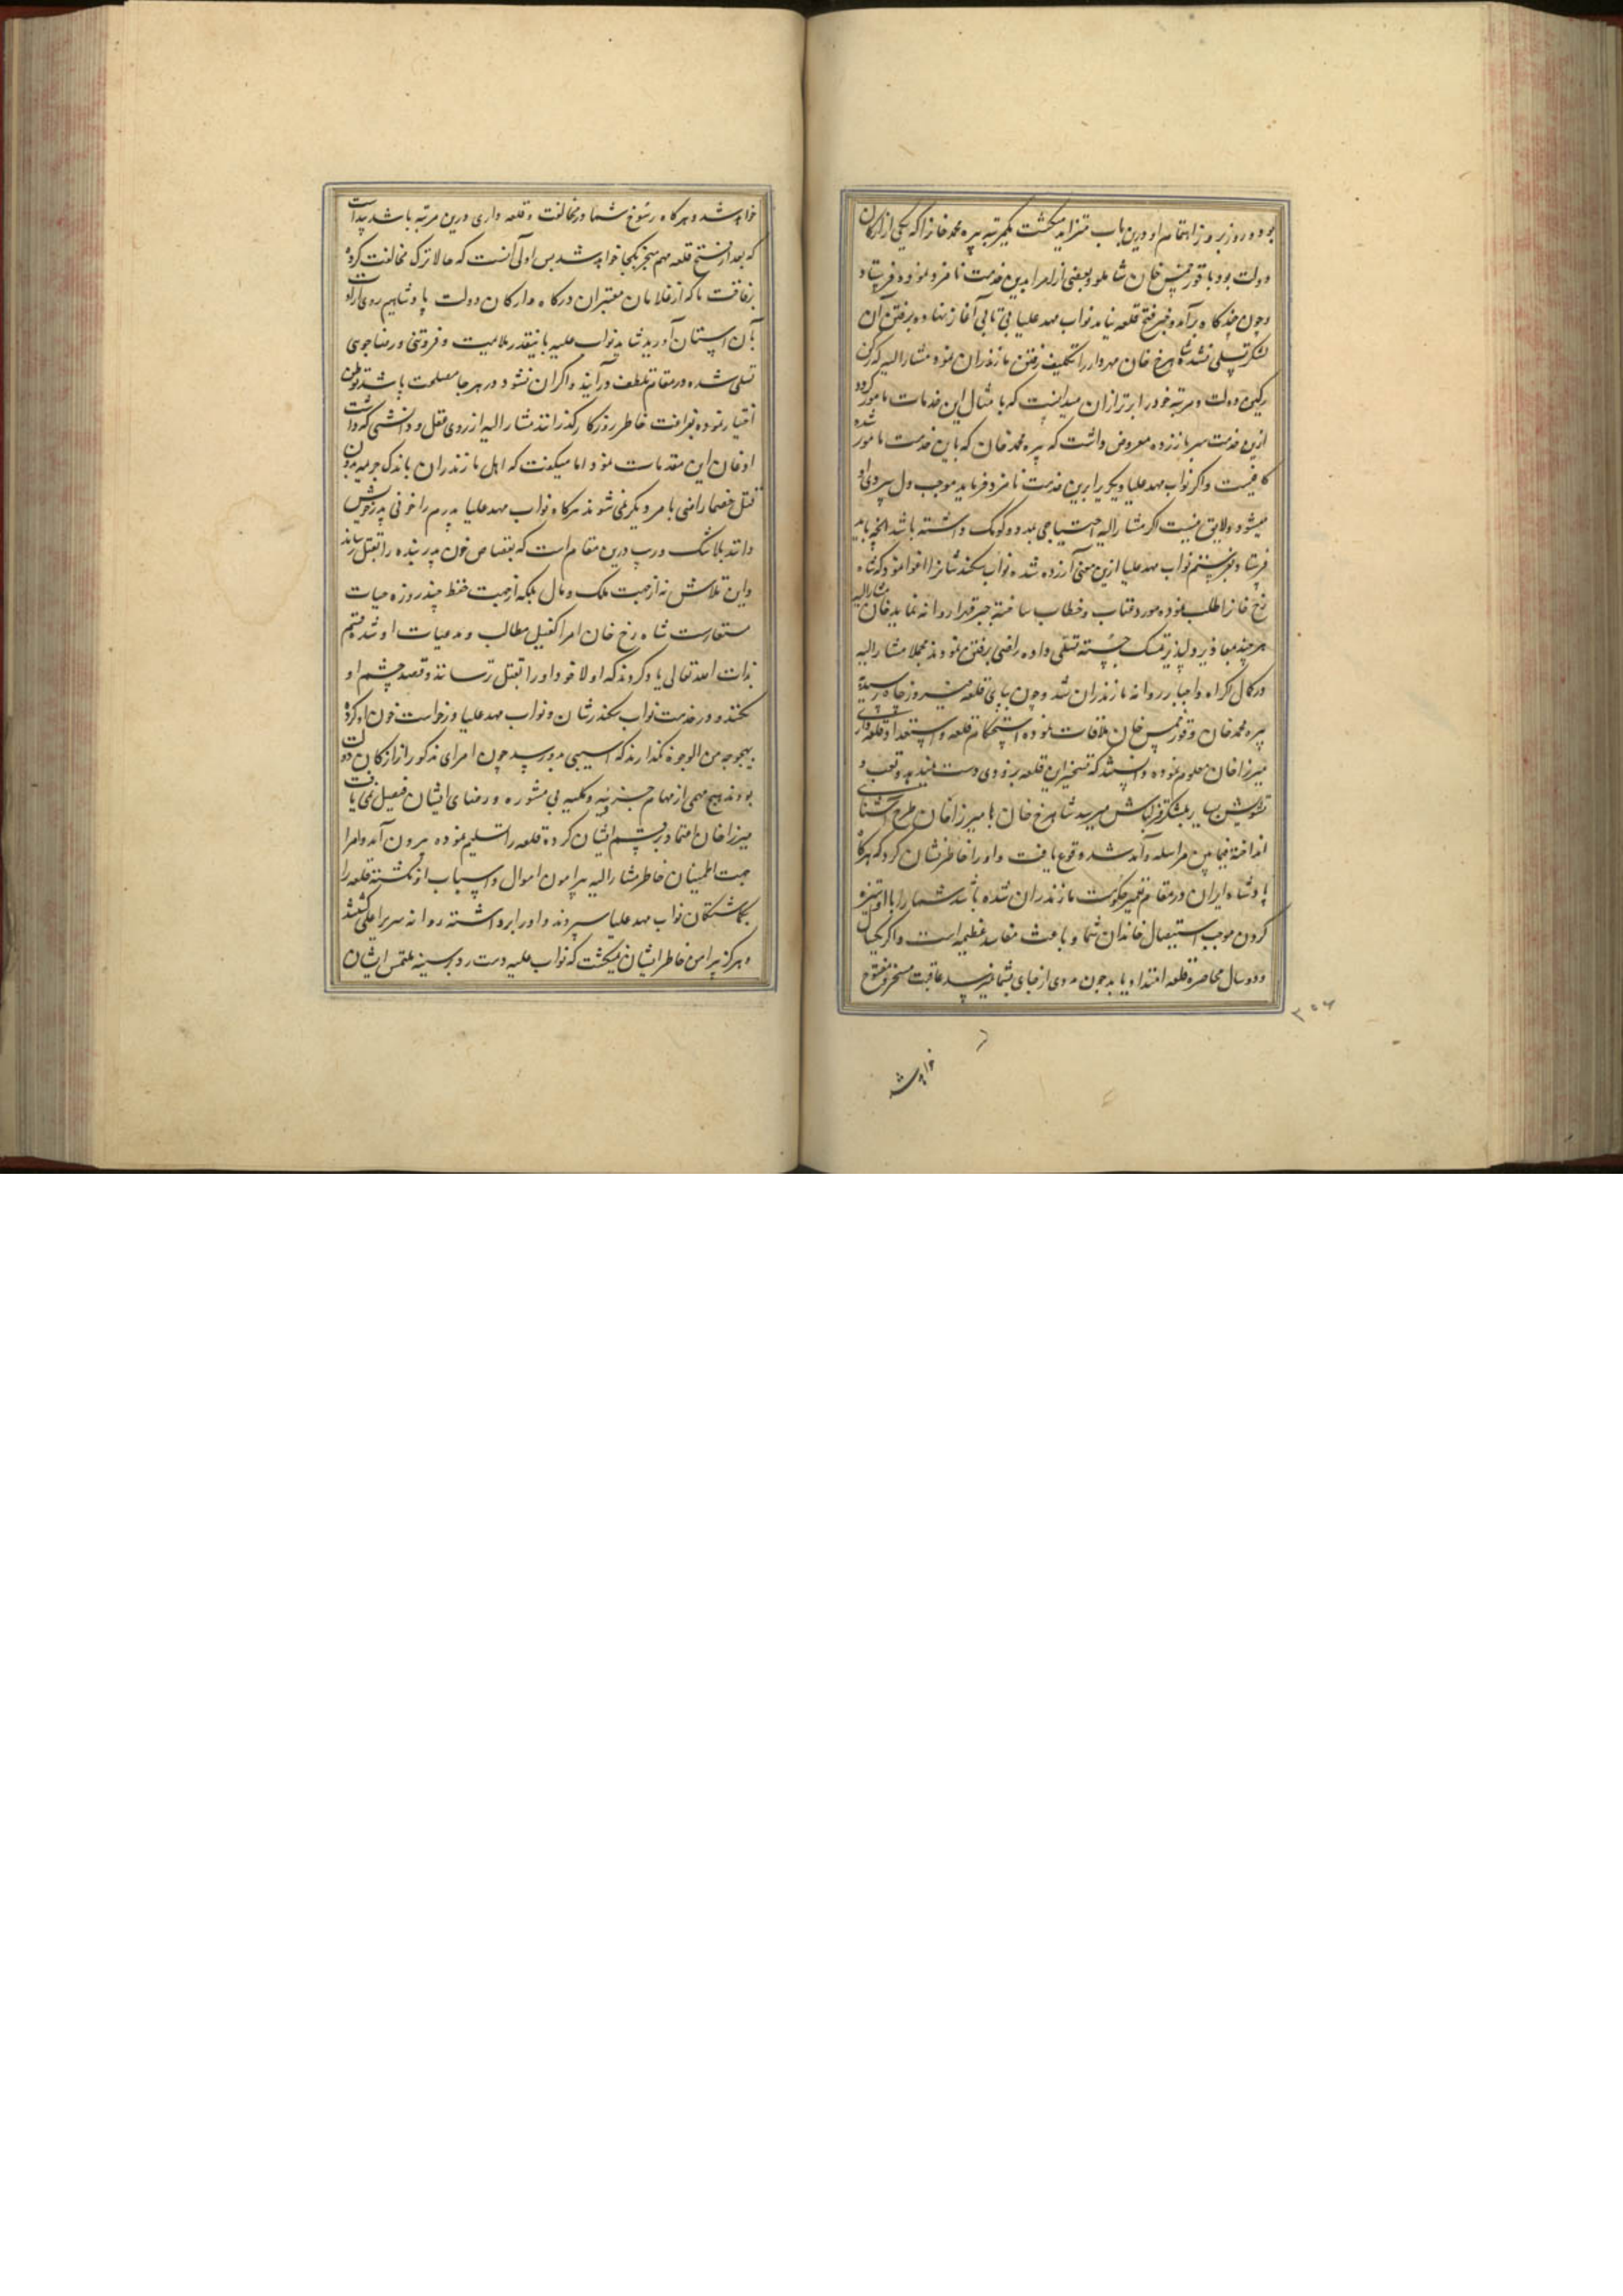 بود و روز بروز اهتمام او درین باب متزاید میگشت یکمرتبه پیره محمد خانرا که یکی از ارکان
دولت بود با قورخمس خان شاملو و بعضی از امرا بدین خدمت نامزد نموده فرستاد
و چون چندگاه برآمد و خبر فتح قلعه نیامد نواب مهد علیا بی تابی آغاز نهاده برفتن آن
لشکر تسلی نشده شاهرخ خان مهردار را تکلیف رفتن مازندران نمود مشارالیه که رکن
رکین دولت و مرتبه خود را برتر از آن میدانست که بامثال این خدمات مامور گردد
ازین خدمت سر باز زده معروض داشت که پیره محمد خان که باین خدمت مامور شده
کافیست و اگر نواب مهد علیا دیگریرا برین خدمت نامزد فرماید موجب دل سردی او
میشود و لایق نیست اگر مشارالیه احتیاجی بمدد و کومک داشته باشد آنچه باید
فرستاد بفرستیم نواب مهد علیا ازین معنی آزرده شده نواب سکندر شانرا اغوا نمود که شاه
رخ خانرا طلب نموده مورد عتاب و خطاب ساخته جبر قهرا روانه نماید خان مشارالیه
هر چند معاذیر دلپذیر تمسک جسته تسلی داده راضی برفتن نمودند مجملا مشارالیه
در کمال اکراه و اجبار روانه مازندران شد و چون بپای قلعه فیروزجاه رسیده
پیره محمد خان و قورخمس خان ملاقات نموده استحکام قلعه و استعداد قلعه داری
میرزا خان معلوم نموده دانستند که تسخیر این قلعه بزودی دست نمیدهد و تعب و
تشویش بسیار بلشکر قزلباش میرسد شاهرخ خان با میرزا خان طرح آشنائی
انداخته فیمابین مراسله و آمد شد وقوع یافت و او را خاطرنشان کرد که هرگاه
پادشاه ایران در مقام تغییر حکومت مازندران شده باشد شما را با او ستیزه
کردن موجب استیصال خاندان شما و باعث مفاسد عظیمه است و اگر یکسال
و دو سال محاصره قلعه امتداد یابد چون مددی از جای بشما نمیرسد عاقبت مسخر و مفتوح
۳۵۶
خواهد شد
خواهد شد و هرگاه رسوخ شما در مخالفت و قلعه داری درین مرتبه باشد پیداست
که بعد از فتح قلعه مهم منجر بکجا خواهد شد پس اولی آنست که حالا ترک مخالفت کرده
برفاقت ما که از غلامان معتبران درگاه و ارکان دولت پادشاهیم روی ارادت
بآن آستان آورید شاید نواب علیه باینقدر ملایمت و فروتنی و رضاجوی
تسلی شده در مقام تلطف درآیند و اگر آن نشود در هر جا مصلحت باشد توطن
اختیار نموده بفراغت خاطر روزگار گذرانند مشارالیه از روی عقل و دانشی که داشت
اذعان این مقدمات نمود اما میگفت که اهل مازندران باندک جریمه بدون
قتل خصما راضی بامر دیگر نمی شوند هرگاه نواب مهد علیا پدرم را خونی پدر خویش
داند بلاشک و ریب درین مقام است که بقصاص خون پدر بنده را بقتل رساند
و این تلاش نه از جهت ملک و مال بلکه از جهت حفظ چند روزه حیات
مستعارست شاه رخ خان امرا کفیل مطالب و مدعیات او شده قسم
بذات الله تعالی یاد کردند که اولا خود او را بقتل نرسانند و قصد چشم او
نکنند و در خدمت نواب سکندر شان و نواب مهد علیا درخواست خون او کرده
بهیچ وجه من الوجوه نگذارند که آسیبی بدو رسد چون امرای مذکور از ارکان دولت
بودند هیچ مهمی از مهام جزئیه و کلیه بی مشوره و رضای ایشان فیصل نمی یافت
میرزا خان اعتماد بر قسم ایشان کرده قلعه را تسلیم نموده بیرون آمد و امرا
جهت اطمینان خاطر مشارالیه پیرامون اموال و اسباب او نگشته قلعه را
بگماشتگان نواب مهد علیا سپردند و او را برداشته روانه سریر اعلی گشتند
و هرگز پیرامن خاطر ایشان نمیگشت که نواب علیه دست رد بر سینه ملتمس ایشان